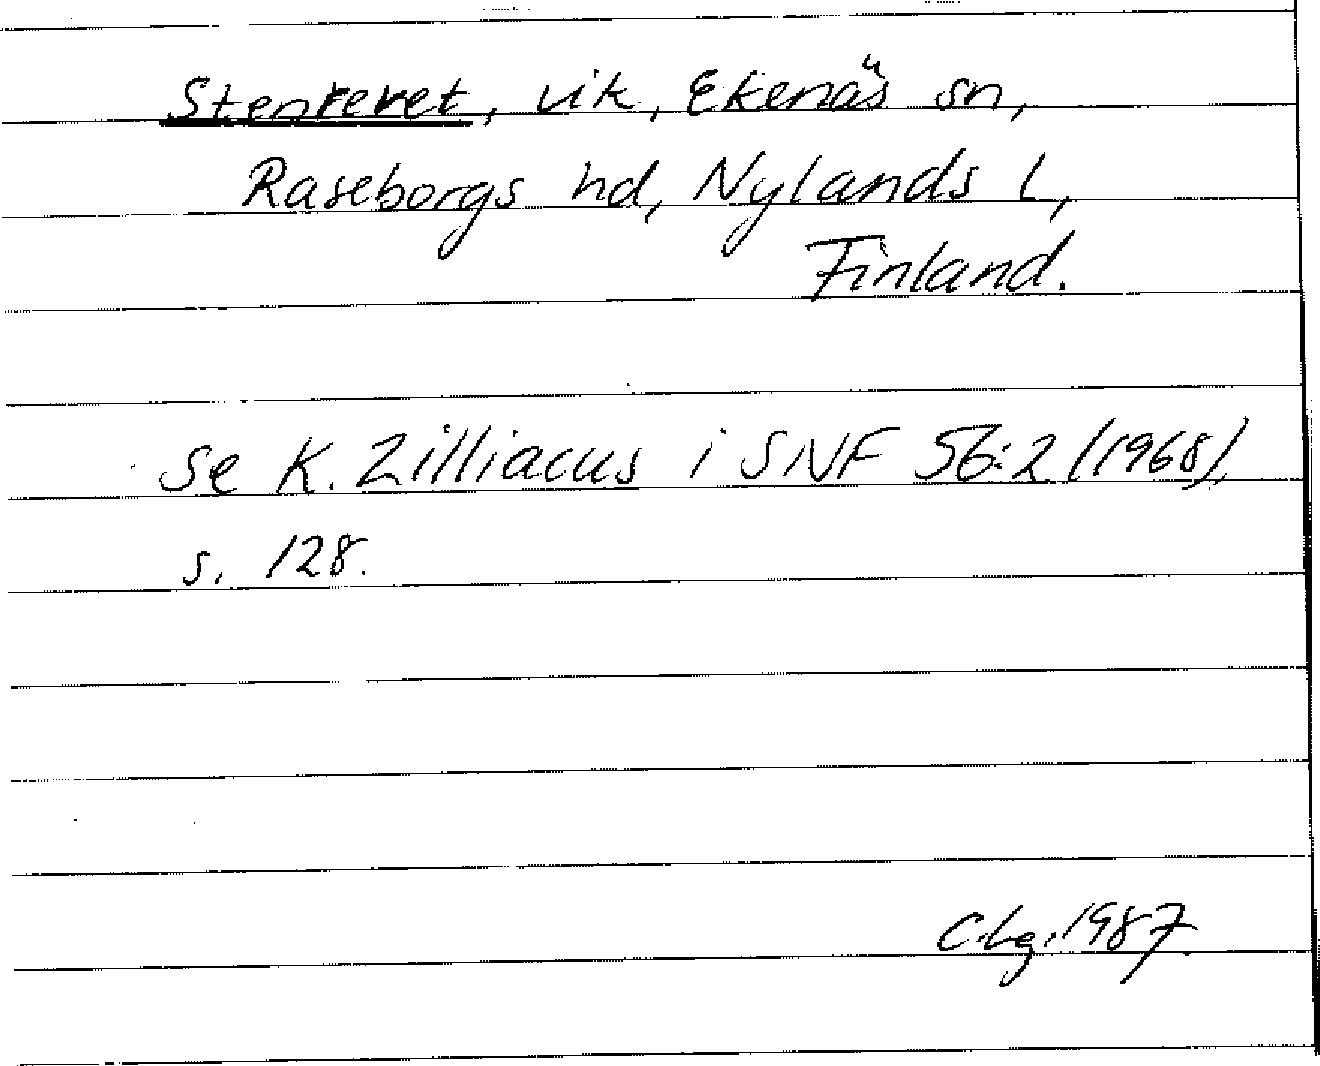 Stenrevet, vik, Ekenäs sn,
Raseborgs hd, Nylands l,
Finland.
Se K. Zilliacus i SNF 56:2 (1968),
s. 128.
C.Lg. 1987.